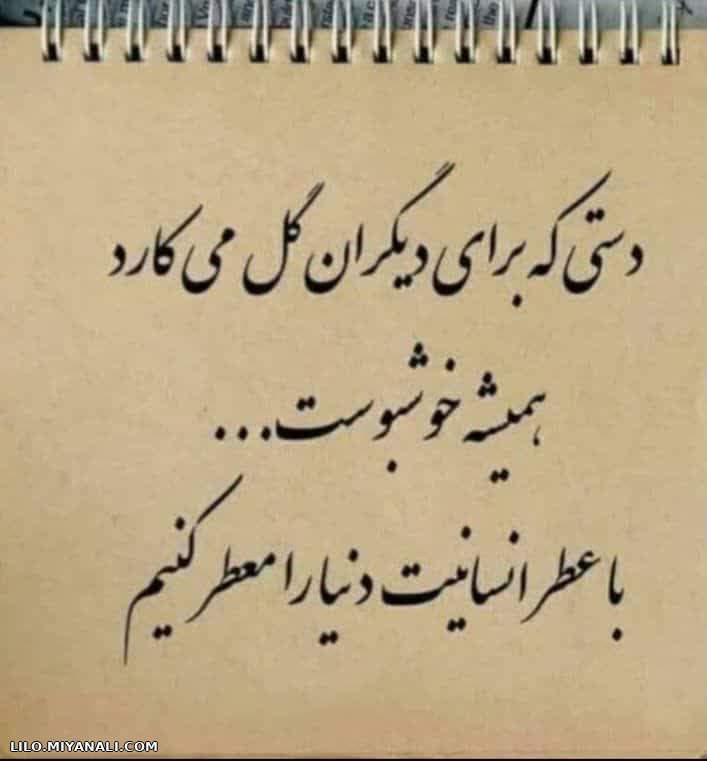 دستی که برای دیگران گل می کارد
همیشه خوشبوست...
با عطر انسانیت دنیا را معطر کنیم
LILO.MIYANALI.COM